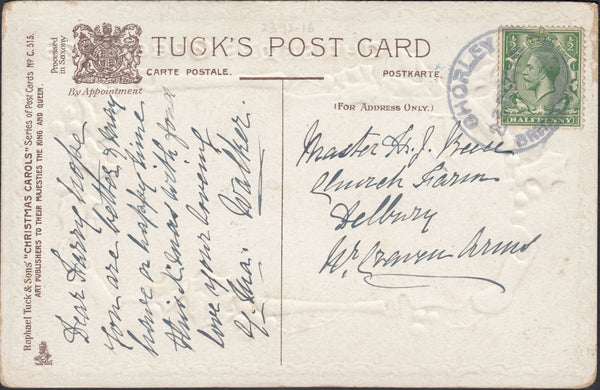 23-12-15
TUCK'S POST CARD
CARTE POSTALE.
POSTKARTE.
By Appointment
(FOR ADDRESS ONLY.)
Processed in Saxony
Raphael Tuck & Sons' "CHRISTMAS CAROLS" Series of Post Cards No C. 515.
ART PUBLISHERS TO THEIR MAJESTIES THE KING AND QUEEN.
Dear Harry hope
you are better & may
have a happy time
this Xmas with fond
love your loving
Walker.
Master H. J.
Church Farm
Delbury
Nr. Craven Arms
CHORLEY
½ ½
HALFPENNY